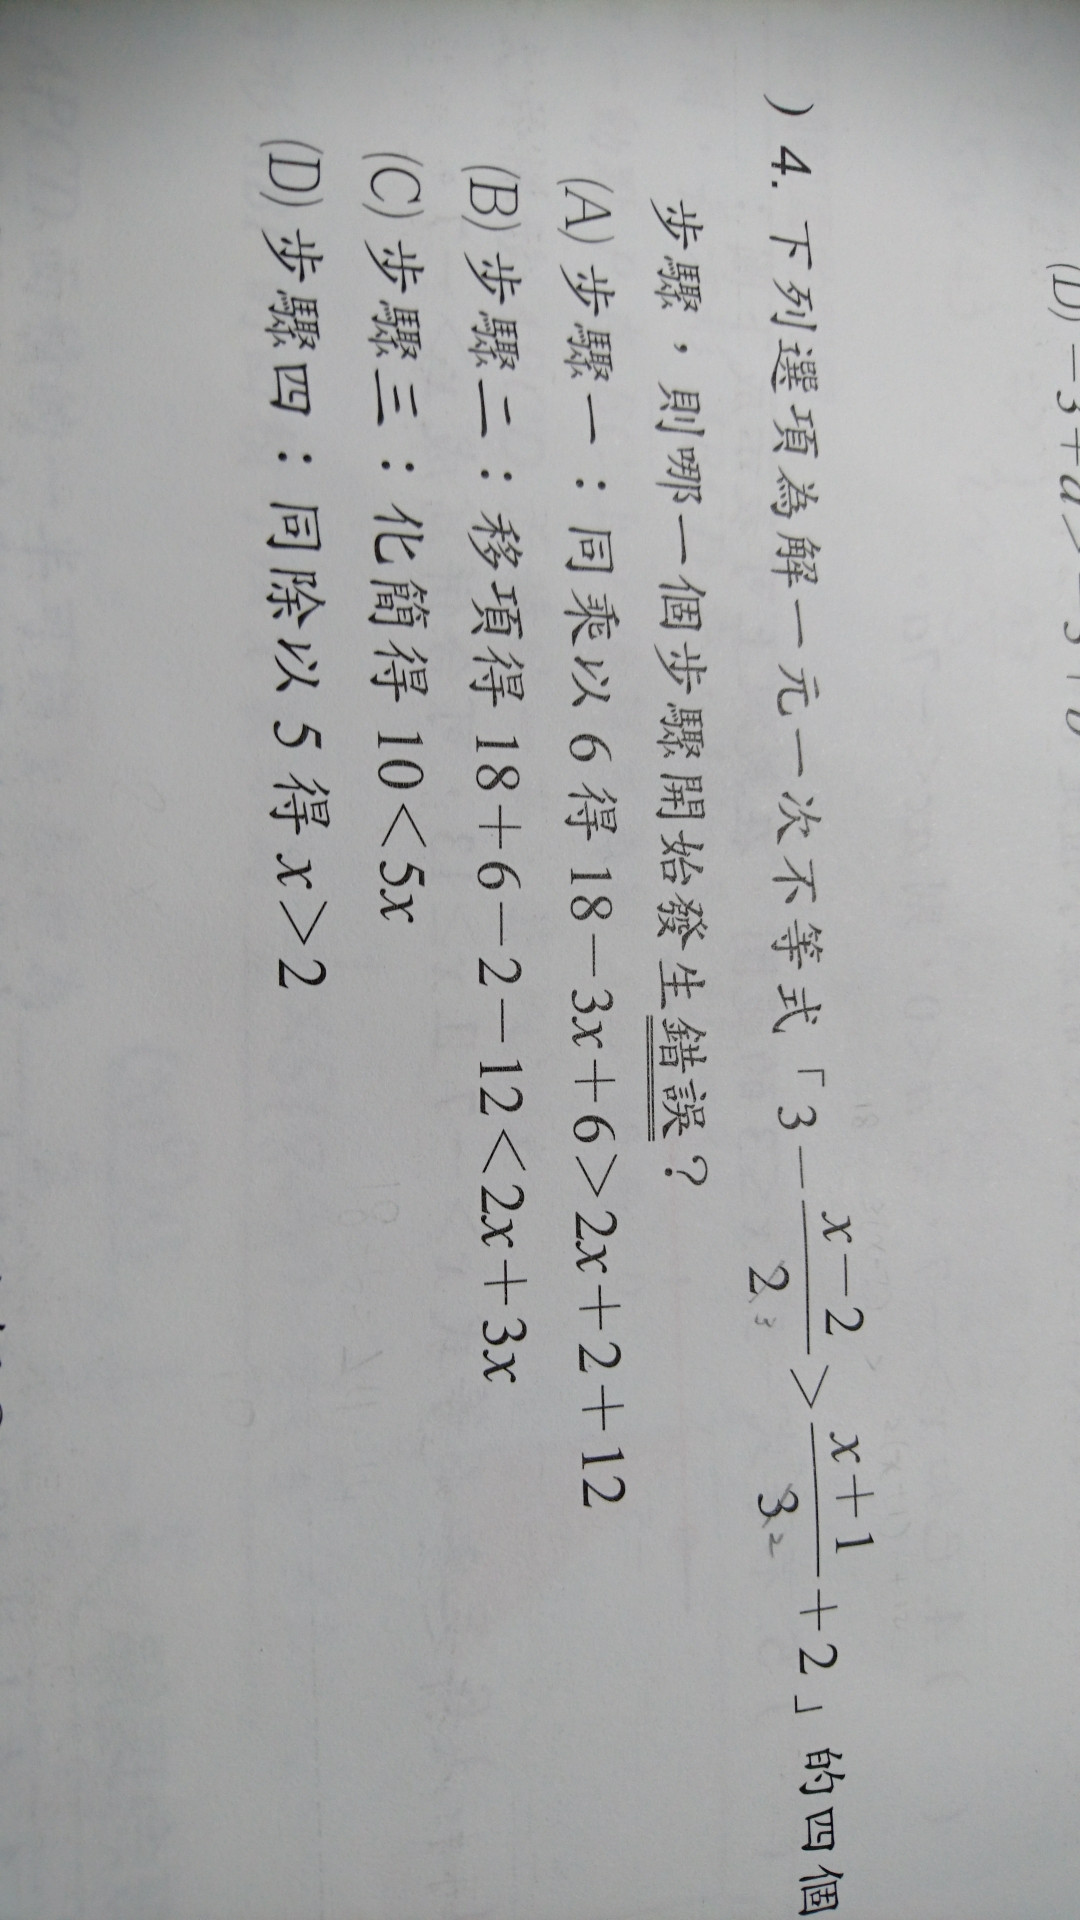 (D) －3＋a＞－3＋b
) 4. 下列選項為解一元一次不等式「3－\frac{x－2}{2}＞\frac{x＋1}{3}＋2」的四個
步驟，則哪一個步驟開始發生錯誤？
(A) 步驟一：同乘以 6 得 18－3x＋6＞2x＋2＋12
(B) 步驟二：移項得 18＋6－2－12＜2x＋3x
(C) 步驟三：化簡得 10＜5x
(D) 步驟四：同除以 5 得 x＞2